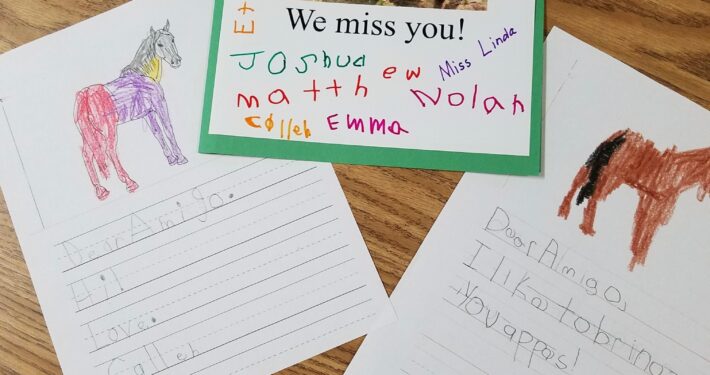 Et
We miss you!
Joshua
Matthew
Miss Linda
Nolan
Colleb
Emma
Dear Amigo.
Hi!
Love.
Calleb
Dear Amigo,
I like to bring
you appas!